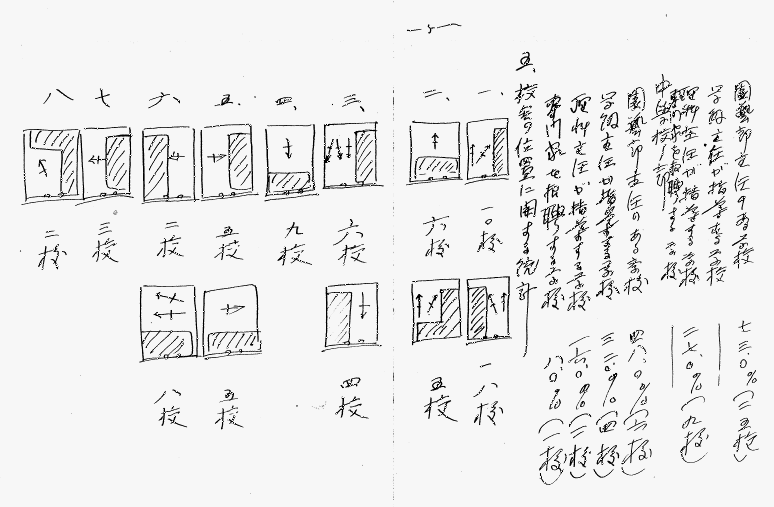 園藝部主任のある学校 七三.〇%(二五校)
学級主任が指導する学校
理科主任が指導する学校 二七.〇%(九校)
園藝部主任のある学校 四八.〇%(六校)
学級主任が指導する学校 三二.〇%(四校)
理科主任が指導する学校 一六.〇%(二校)
専門家を招聘する学校 八.〇%(一校)
五、校舎の位置に関する統計
一、
一〇校
一八校
二、
六校
五校
三、
六校
四校
四、
九校
五、
五校
五校
六、
二校
八校
七
三校
八
二校